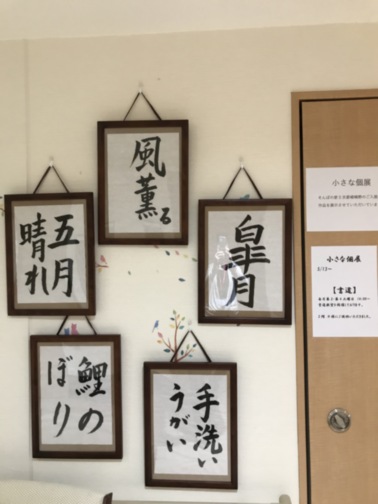 風薫る
五月
晴れ
皐月
鯉の
ぼり
手洗い
うがい
小さな個展
小さな個展
5/13〜
【書道】